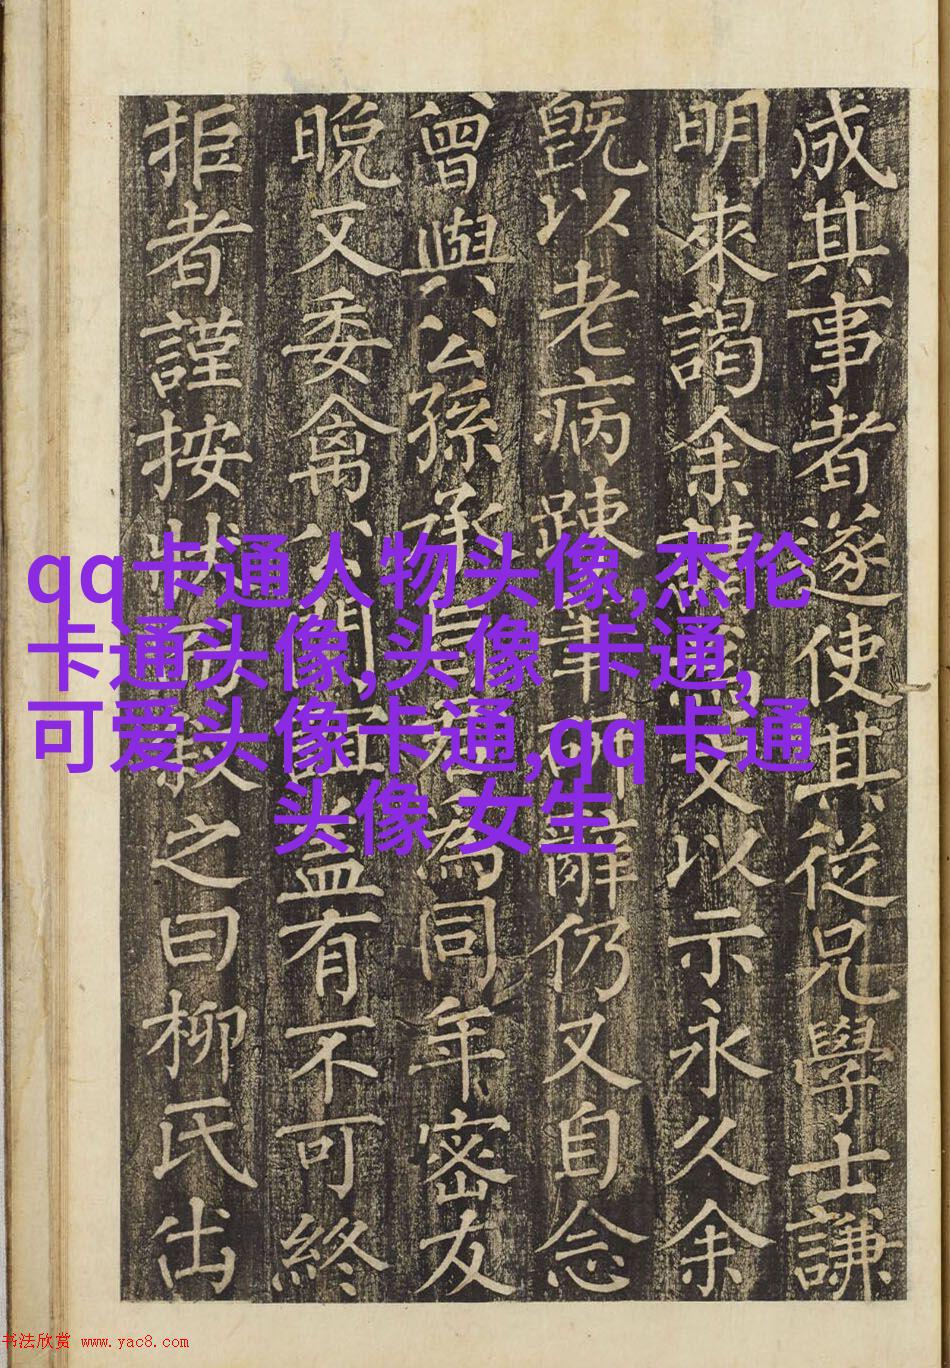 成其事者遂使其從兄學士謙
明來謁余文以示永久余
既以老病踈筆辭仍又自念
曾與公孫承為同年密友
晚又委禽公門益有不可終
拒者謹按狀敘之曰柳氏出
qq卡通人物头像,杰伦
卡通头像,头像 卡通,
可爱头像卡通,qq卡通
头像 女生
书法欣赏 www.yac8.com